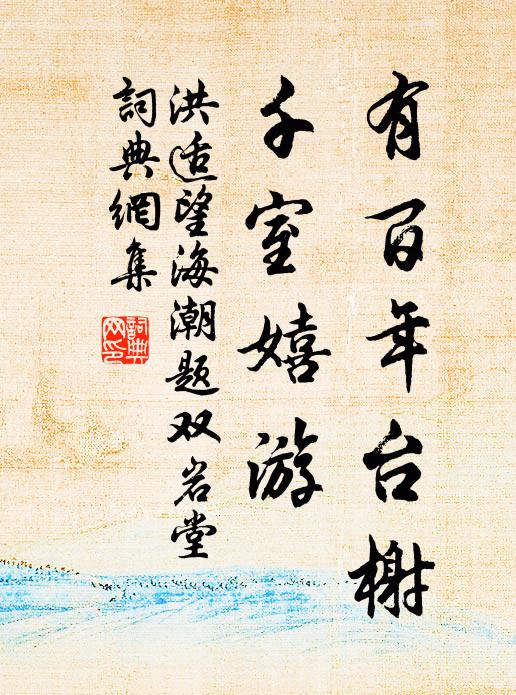 有百年台榭
千室嬉游
洪适望海潮题双岩堂
詞典網集
詞典网印